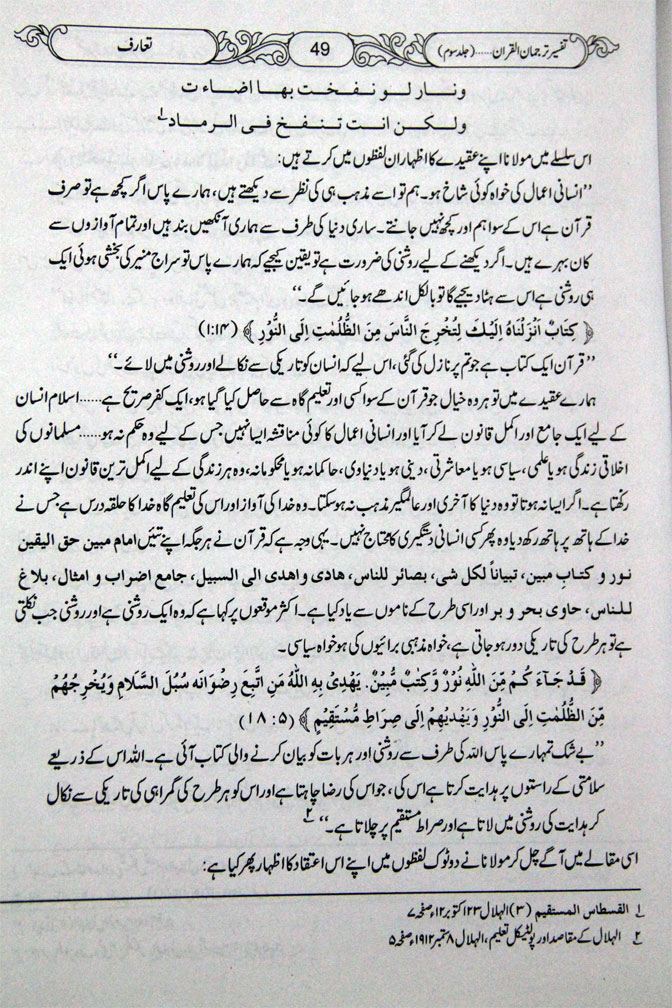 تفسیر ترجمان القرآن.....(جلد سوم)
49
تعارف
ونار لو نفخت بها اضاءت
ولکن انت تنفخ فی الرماد ۱؎
اس سلسلے میں مولانا اپنے عقیدے کا اظہار ان لفظوں میں کرتے ہیں:
’’انسانی اعمال کی خواہ کوئی شاخ ہو۔ ہم تو اسے مذہب ہی کی نظر سے دیکھتے ہیں، ہمارے پاس اگر کچھ ہے تو صرف
قرآن ہے اس کے سوا ہم اور کچھ نہیں جانتے۔ ساری دنیا کی طرف سے ہماری آنکھیں بند ہیں اور تمام آوازوں سے
کان بہرے ہیں۔ اگر دیکھنے کے لیے روشنی کی ضرورت ہے تو یقین کیجیے کہ ہمارے پاس تو سراج منیر کی بخشی ہوئی ایک
ہی روشنی ہے اس سے ہٹا دیجیے گا تو بالکل اندھے ہو جائیں گے۔‘‘
﴿ کِتَابٌ اَنْزَلْنَاهُ اِلَیْكَ لِتُخْرِجَ النَّاسَ مِنَ الظُّلُمٰتِ اِلَی النُّوْرِ ﴾ (۱:۱۴)
’’قرآن ایک کتاب ہے جو تم پر نازل کی گئی، اس لیے کہ انسان کو تاریکی سے نکالے اور روشنی میں لائے۔‘‘
ہمارے عقیدے میں تو ہر وہ خیال جو قرآن کے سوا کسی اور تعلیم گاہ سے حاصل کیا گیا ہو، ایک کفر صریح ہے......اسلام انسان
کے لیے ایک جامع اور اکمل قانون لے کر آیا اور انسانی اعمال کا کوئی مناقشہ ایسا نہیں جس کے لیے وہ حکم نہ ہو......مسلمانوں کی
اخلاقی زندگی ہو یا علمی، سیاسی ہو یا معاشرتی، دینی ہو یا دنیاوی، حاکمانہ ہو یا محکومانہ، وہ ہر زندگی کے لیے اکمل ترین قانون اپنے اندر
رکھتا ہے۔ اگر ایسا نہ ہوتا تو وہ دنیا کا آخری اور عالمگیر مذہب نہ ہو سکتا۔ وہ خدا کی آواز اور اس کی تعلیم گاہ خدا کا حلقہ درس ہے جس نے
خدا کے ہاتھ پر ہاتھ رکھ دیا وہ پھر کسی انسانی دستگیری کا محتاج نہیں۔ یہی وجہ ہے کہ قرآن نے ہر جگہ اپنے تئیں امام مبین حق الیقین
نور و کتاب مبین، تبیاناً لکل شی، بصائر للناس، هادی واهدی الی السبیل، جامع اضراب و امثال، بلاغ
للناس، حاوی بحر و بر اور اسی طرح کے ناموں سے یاد کیا ہے۔ اکثر موقعوں پر کہا ہے کہ وہ ایک روشنی ہے اور روشنی جب نکلتی
ہے تو ہر طرح کی تاریکی دور ہو جاتی ہے، خواہ مذہبی برائیوں کی ہو خواہ سیاسی۔
﴿ قَدْ جَآءَ کُمْ مِّنَ اللّٰهِ نُوْرٌ وَّکِتٰبٌ مُّبِیْنٌ. یَهْدِیْ بِهِ اللّٰهُ مَنِ اتَّبَعَ رِضْوَانَه سُبُلَ السَّلَامِ وَیُخْرِجُهُمْ
مِّنَ الظُّلُمٰتِ اِلَی النُّوْرِ وَیَهْدِیْهِمْ اِلٰی صِرَاطٍ مُّسْتَقِیْمٍ ﴾ (۱۸:۵)
’’بے شک تمہارے پاس اللہ کی طرف سے روشنی اور ہر بات کو بیان کرنے والی کتاب آئی ہے۔ اللہ اس کے ذریعے
سلامتی کے راستوں پر ہدایت کرتا ہے اس کی، جو اس کی رضا چاہتا ہے اور اس کو ہر طرح کی گمراہی کی تاریکی سے نکال
کر ہدایت کی روشنی میں لاتا ہے اور صراط مستقیم پر چلاتا ہے۔‘‘ ۲؎
اسی مقالے میں آگے چل کر مولانا نے دو ٹوک لفظوں میں اپنے اس اعتقاد کا اظہار پھر کیا ہے:
۱؎ القسطاس المستقیم (۳) الہلال ۲۳ اکتوبر ۱۲ء صفحہ ۷
۲؎ الہلال کے مقاصد اور پولیٹیکل تعلیم، الہلال ۸ ستمبر ۱۹۱۲ء صفحہ ۵